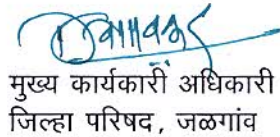 मुख्य कार्यकारी अधिकारी
जिल्हा परिषद, जळगांव